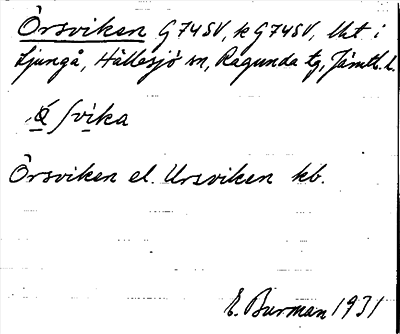 Örsviken G74SV, k G74SV, lht i
Ljungå, Hällesjö sn, Ragunda tg, Jämtl. l.
Örsviken el. Ursviken kb.
E. Burman 1931